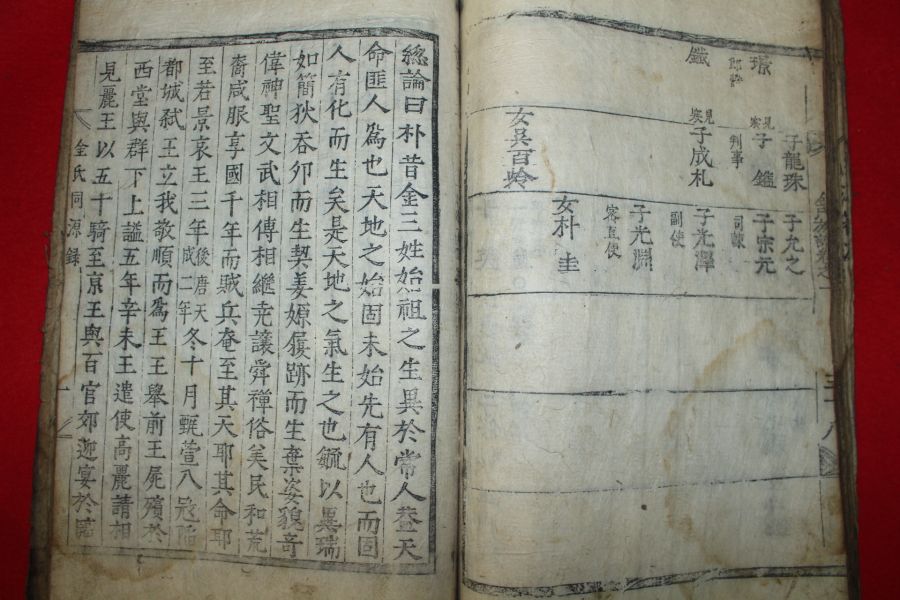 子龍珠
子允之
見
子鑑
子宗元
判事
司諫
見
子成札
子光澤
副使
子光淵
密直使
女朴圭
女吳百齡
總論曰朴昔金三姓始祖之生異於常人盖天
命匪人爲也天地之始固未始先有人也而固
人有化而生矣是天地之氣生之也毓以異瑞
如簡狄吞卵而生契姜嫄履跡而生棄姿貌奇
偉神聖文武相傳相繼堯讓舜禪俗美民和荒
裔咸服享國千年而賊兵奄至其天耶其命耶
至若景哀王三年後唐天咸二年冬十月甄萱入寇陷
都城弑王立我敬順而爲王王舉前王屍殯於
西堂與群下上謚五年辛未王遣使高麗請相
見麗王以五十騎至京王與百官郊迎宴於
金氏同源錄